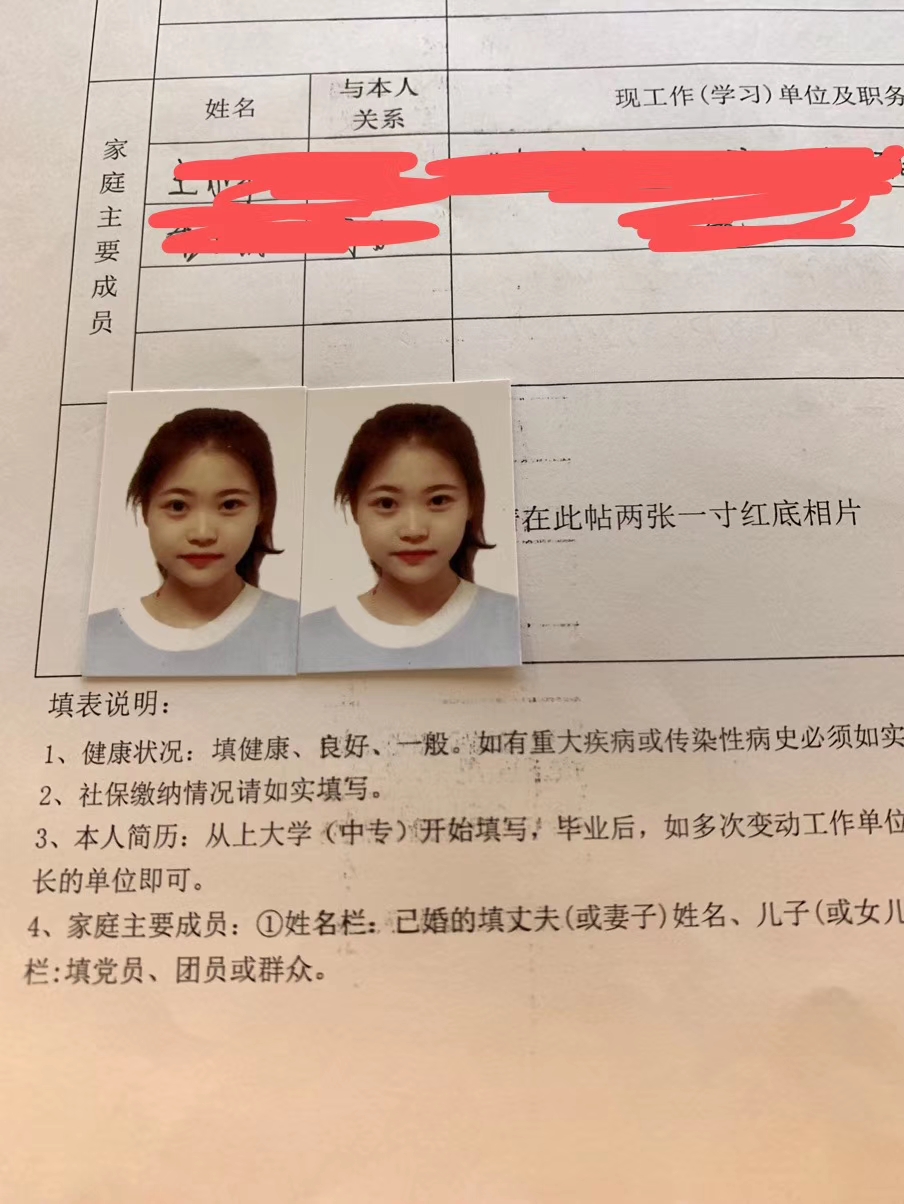 姓名
与本人
关系
现工作(学习)单位及职务
家庭主要成员
在此帖两张一寸红底相片
填表说明：
1、健康状况：填健康、良好、一般。如有重大疾病或传染性病史必须如实
2、社保缴纳情况请如实填写。
3、本人简历：从上大学（中专）开始填写，毕业后，如多次变动工作单位
长的单位即可。
4、家庭主要成员：①姓名栏：已婚的填丈夫(或妻子)姓名、儿子(或女儿
栏:填党员、团员或群众。